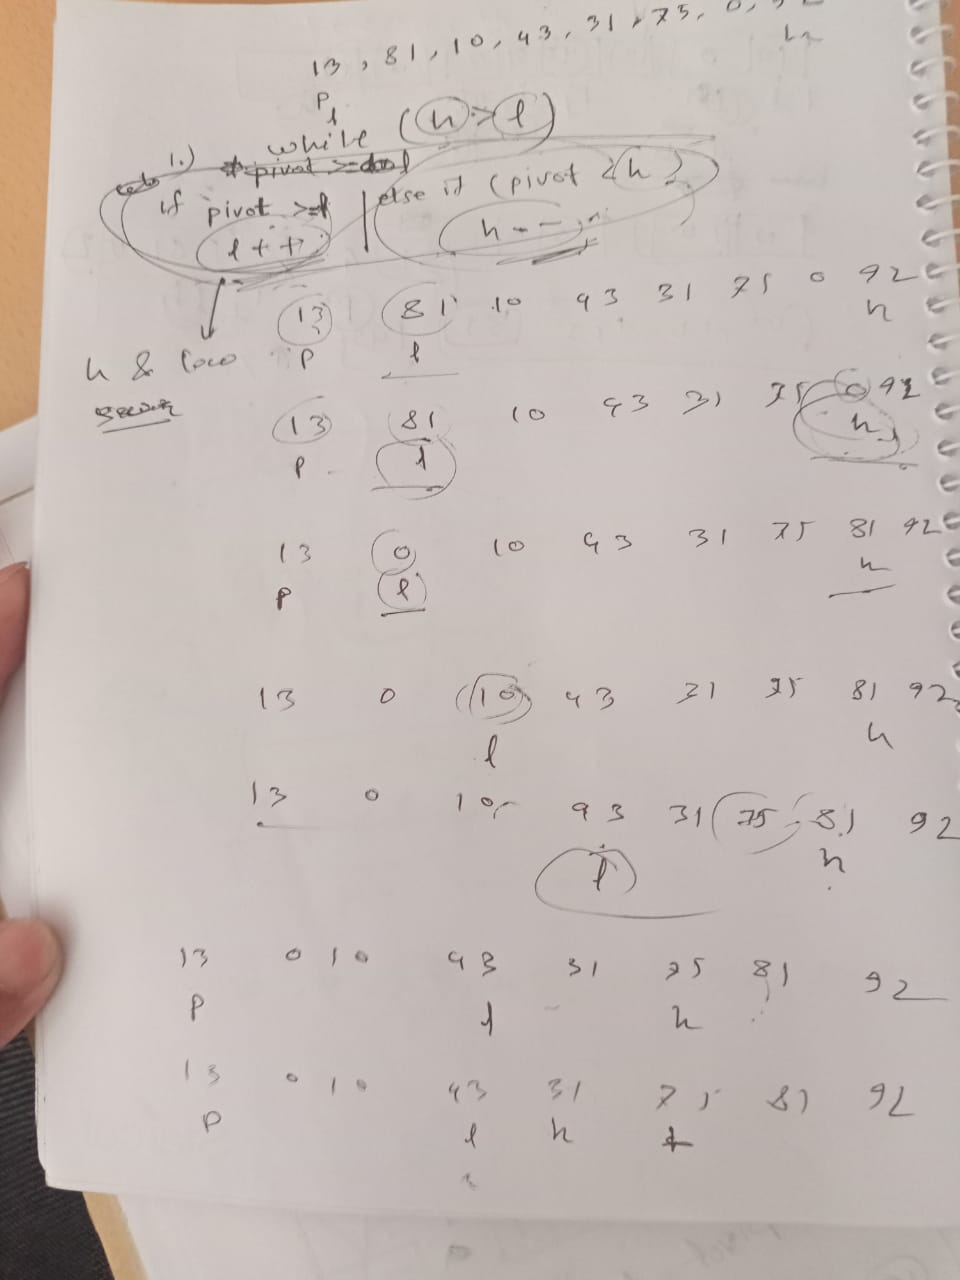 13, 81, 10, 43, 31, 75, 0, 92
P h
l
1.) while (h > l)
if pivot >= l | else if (pivot < h)
l++ h--;
13 81 10 43 31 75 0 92
h &
P l h
13 81 10 43 31 75 0 92
P l h
13 0 10 43 31 75 81 92
P l h
13 0 10 43 31 75 81 92
l h
13 0 10 43 31 75 81 92
l h
13 0 10 43 31 75 81 92
P l h
13 0 10 43 31 75 81 92
P l h